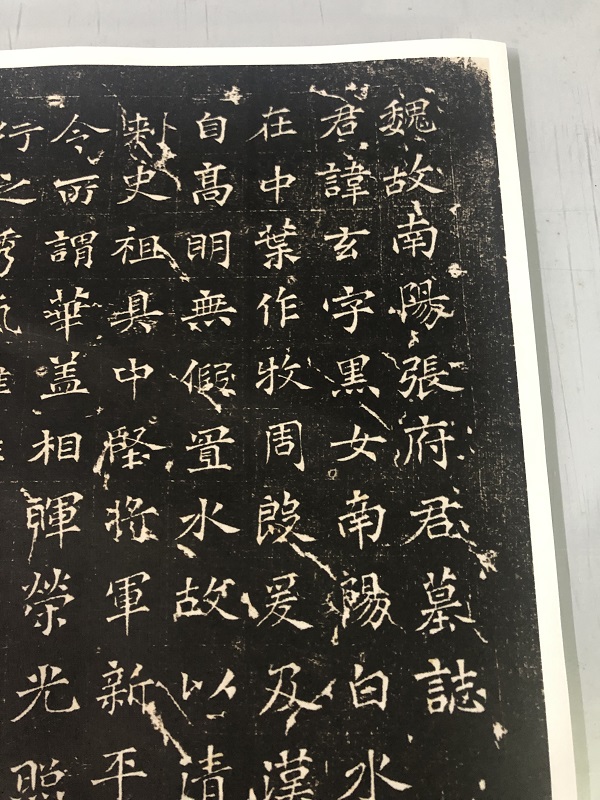 魏故南陽張府君墓誌
君諱玄字黑女南陽白水
在中葉作牧周殷爰及漢
自高明無假置水故以清
刺史祖具中堅將軍新平
今所謂華盖相暉榮光照
行之秀氣